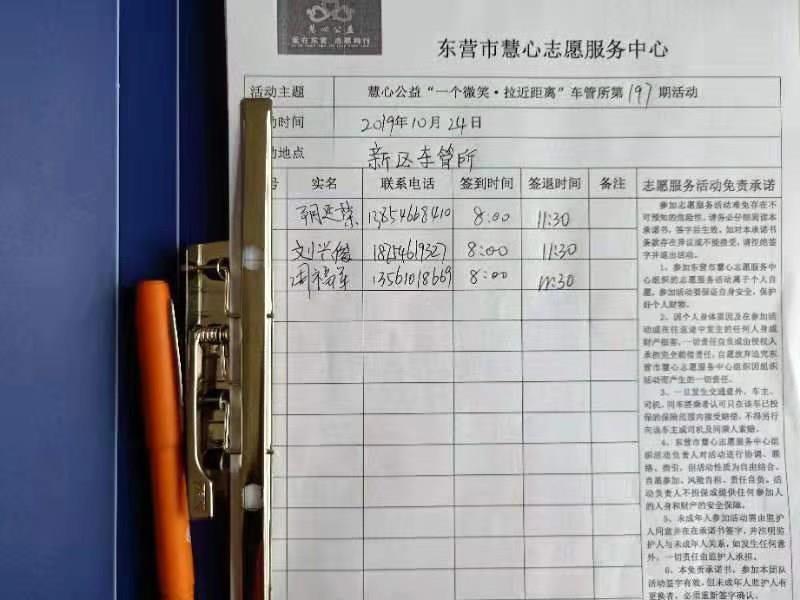 慧心公益
爱在东营 志愿同行
东营市慧心志愿服务中心
活动主题 慧心公益“一个微笑·拉近距离”车管所第197期活动
动时间 2019年10月24日
地点 新区车管所
号 实名 联系电话 签到时间 签退时间 备注 志愿服务活动免责承诺
13854668410 8:00 11:30
刘兴俊 18254619327 8:00 11:30
周福军 13561018669 8:00 11:30
参加志愿服务活动难免存在不
可预知的危险性，请务必仔细阅读本
承诺书，签字后生效。如对本承诺书
条款存在异议或不能接受，请拒绝签
字并退出活动。
1、参加东营市慧心志愿服务中
心组织的志愿服务活动属于个人自
愿，参加活动要保证自身安全，保护
好个人财物。
2、因个人身体原因及在参加活
动或在往返途中发生的任何人身或
财产损害，一切责任自负或由侵权人
承担完全赔偿责任，自愿放弃追究东
营市慧心志愿服务中心组织因组织
活动而产生的一切责任。
3、一旦发生交通意外，车主、
司机、同车搭乘者认可只在该车已投
保的保险范围内接受赔偿，不得另行
向该车主或司机及同乘人索赔。
4、东营市慧心志愿服务中心组
织活动负责人对活动进行协调、联
络、指引，但活动性质为自由结合、
自愿参加、风险自担、责任自负。活
动负责人不担保或提供任何参加人
的人身和财产的安全保障。
5、未成年人参加活动需由监护
人同意并在承诺书签字，并注明监
护人与未成年人关系，如发生任何意
外，一切责任由监护人承担。
6、本免责承诺书，参加本团队
活动签字有效，但未成年人监护人有
更换者，必须重新签字确认。